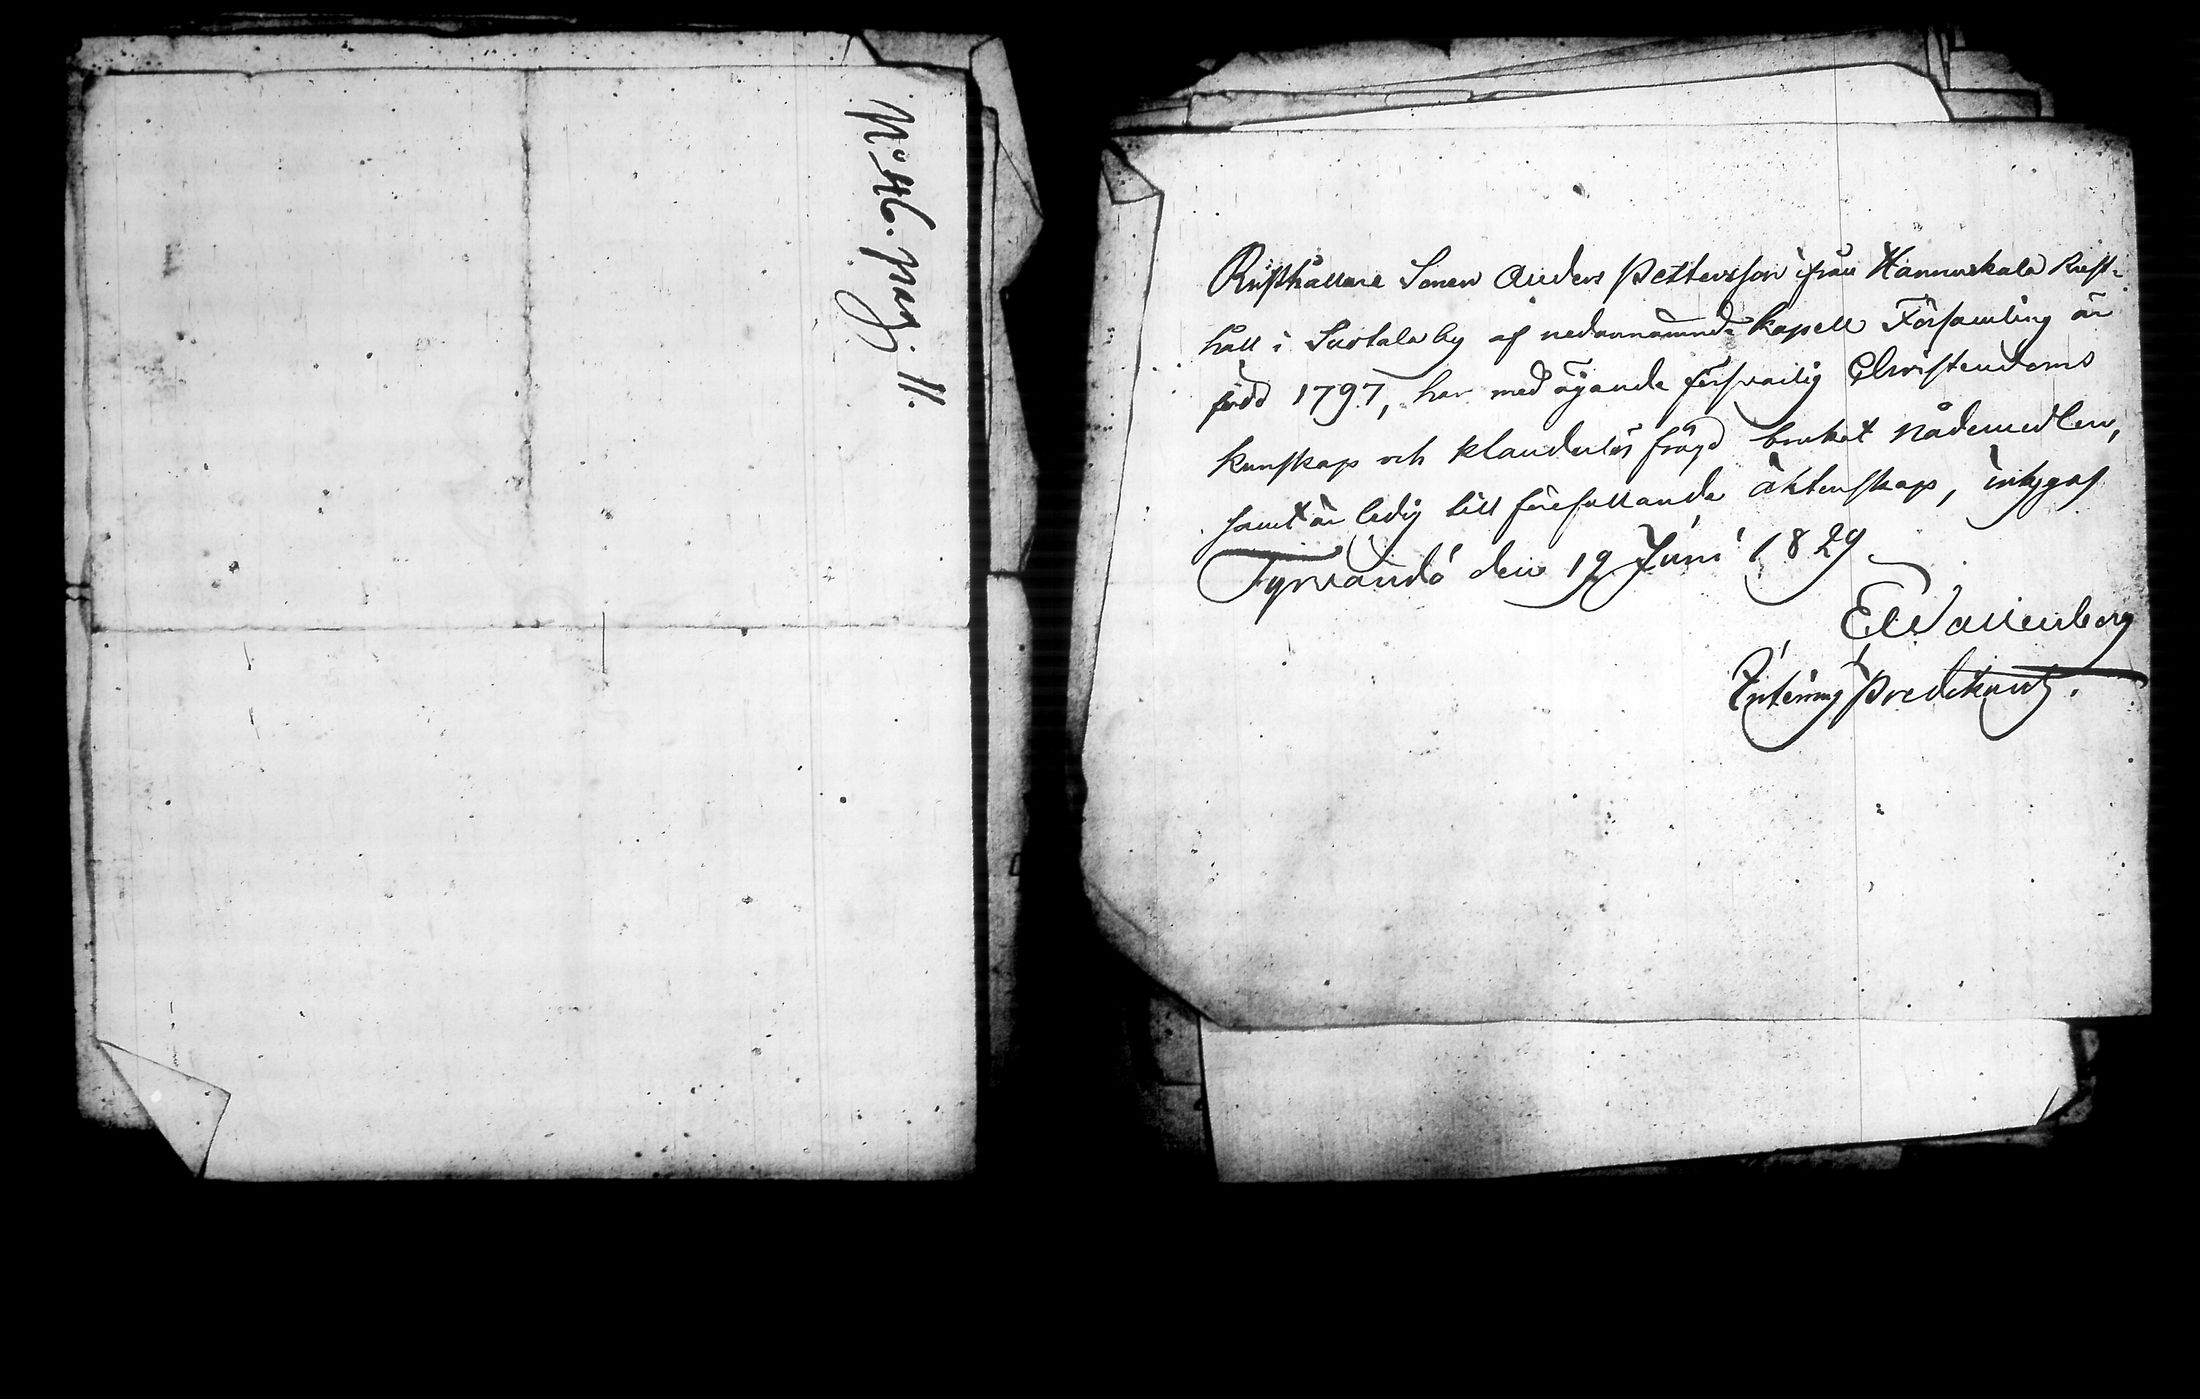 N:o 46. pag. 11.
Rusthållare Sonen Anders Pettersson från Hannuskala Rust-
håll i Suotala by af nedannämnde Kapell Församling är
född 1797, har med ägande försvarlig Christendoms
kunskap och klanderlös frägd brukat Nådemedlen,
samt är ledig till förefallande äktenskap, intygas
Tyrvändö den 19 Junii 1829.
E Wallenberg
Interims Predikant.